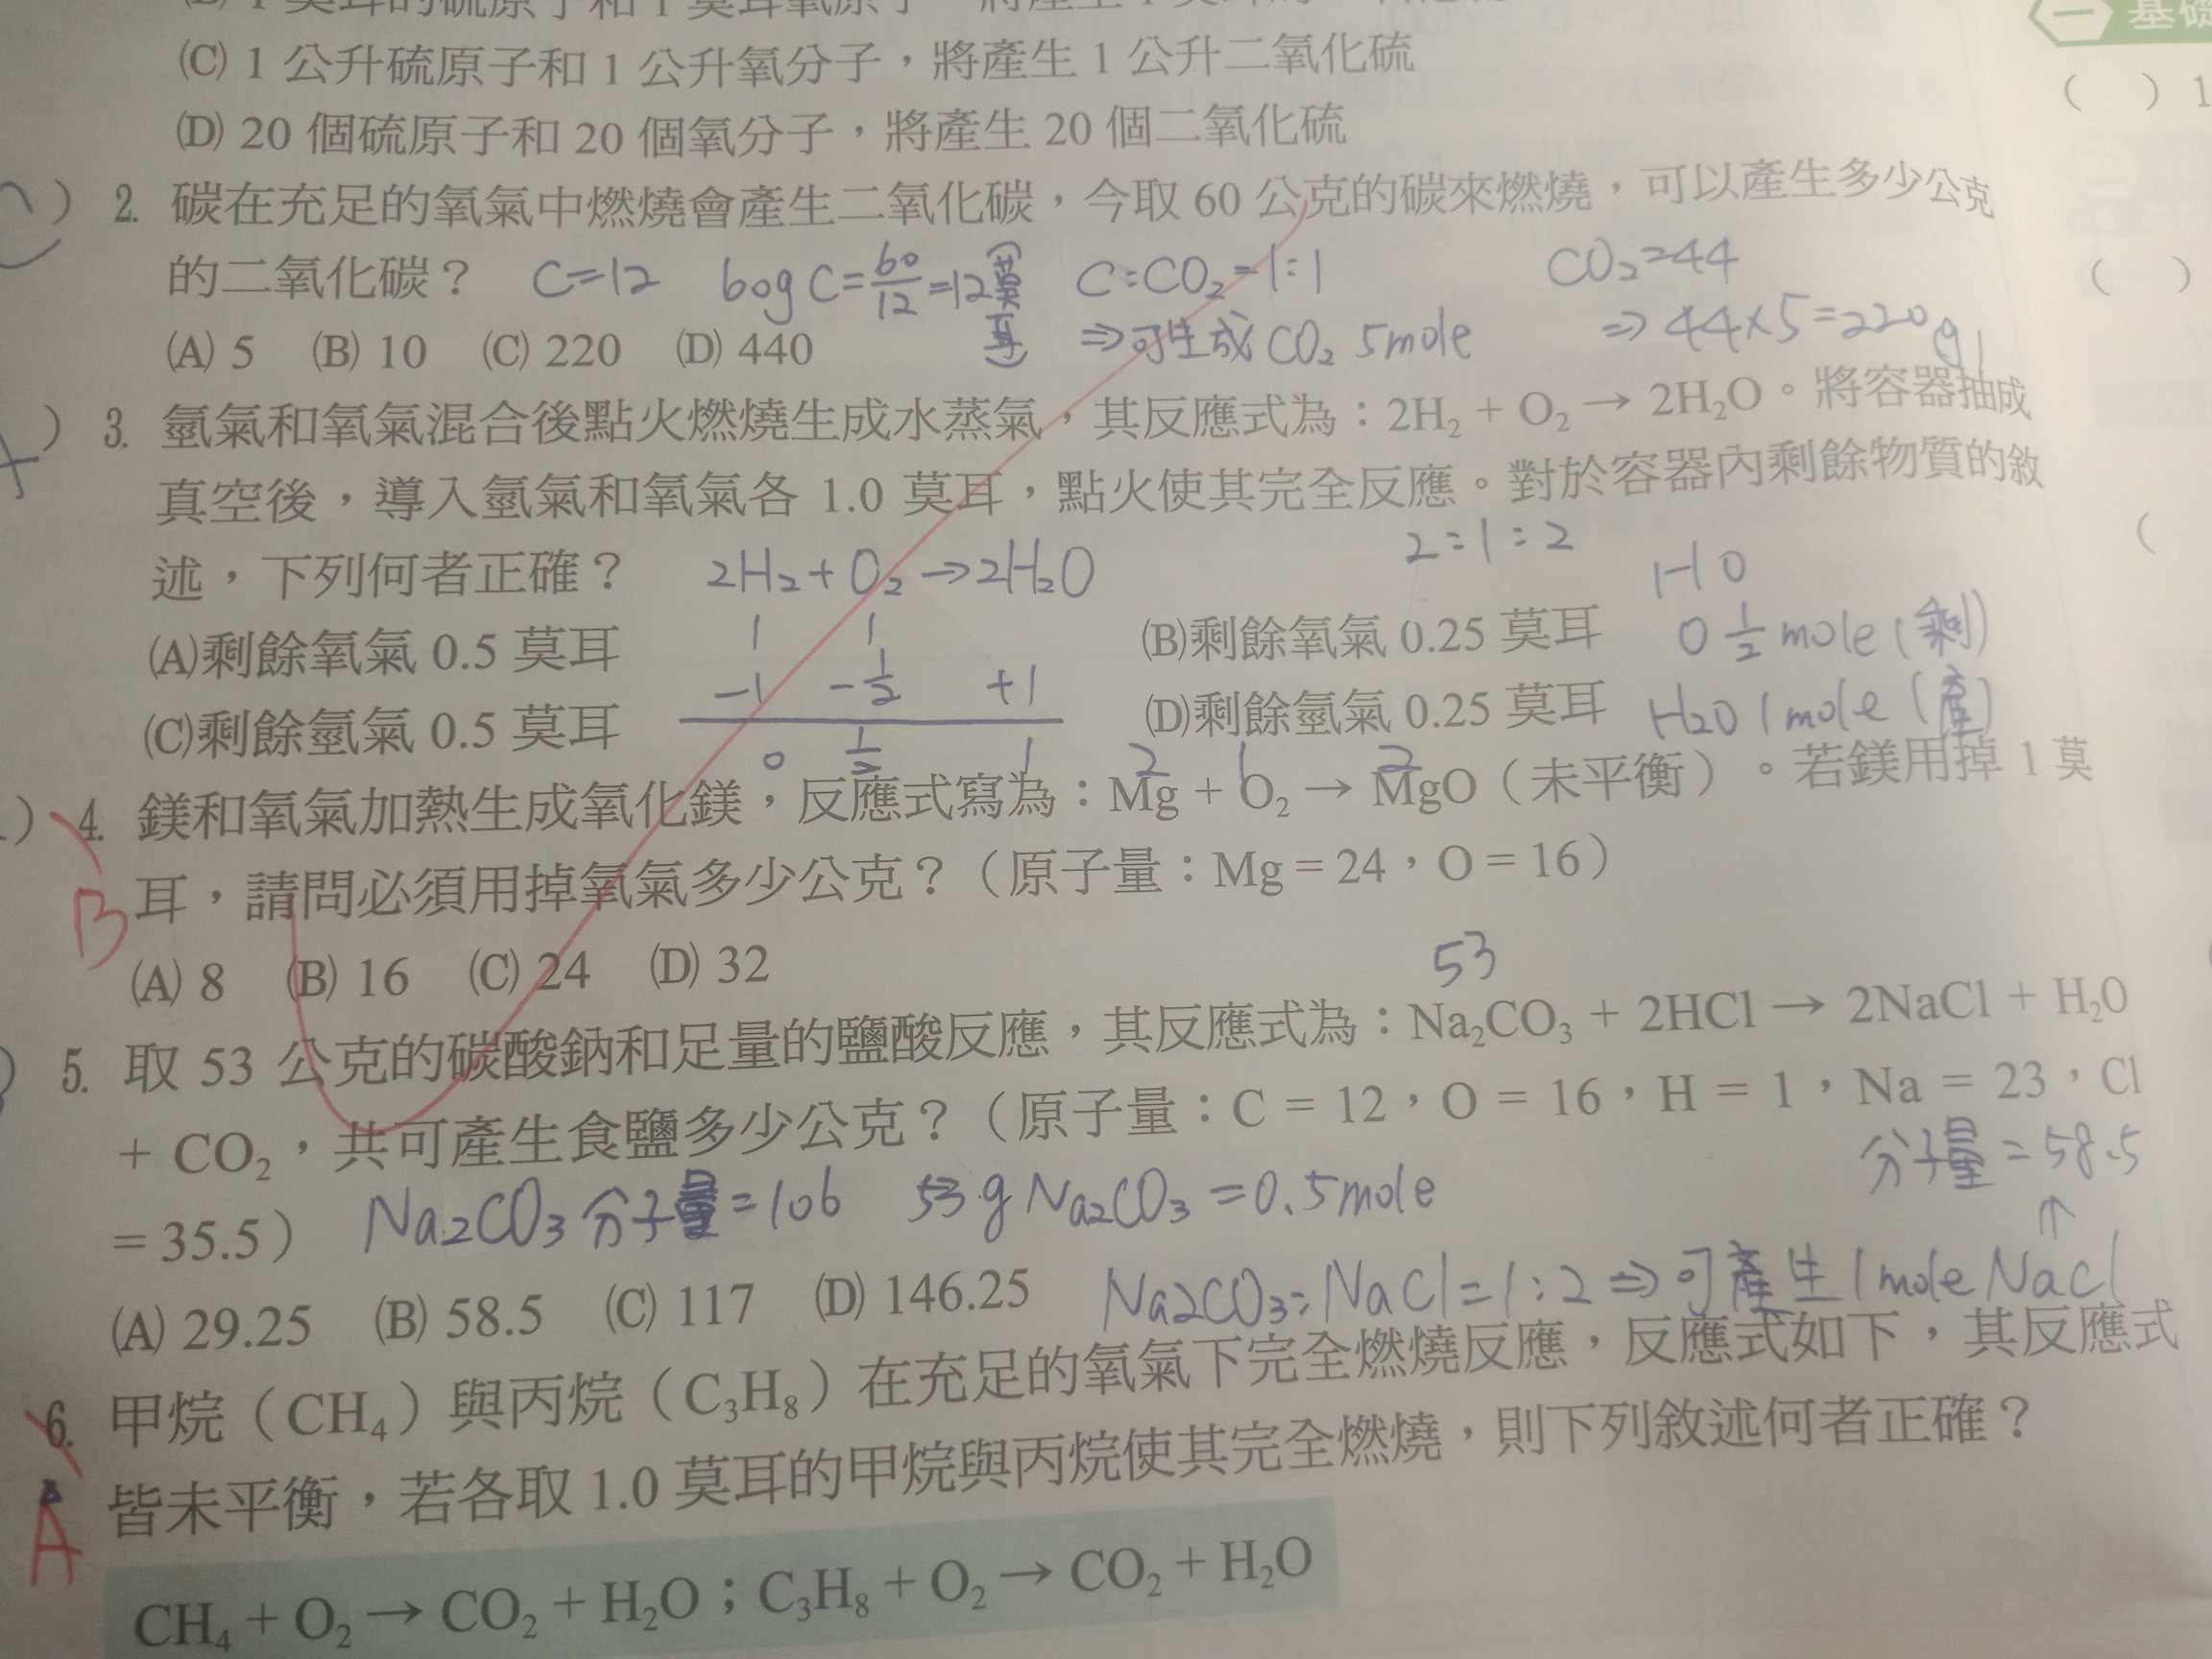 (C) 1 公升硫原子和 1 公升氧分子，將產生 1 公升二氧化硫
(D) 20 個硫原子和 20 個氧分子，將產生 20 個二氧化硫
一 基礎
( ) 1
( )
(
C ) 2. 碳在充足的氧氣中燃燒會產生二氧化碳，今取 60 公克的碳來燃燒，可以產生多少公克
的二氧化碳？ C=12 60g C=60/12=12(莫耳) C:CO₂=1:1 CO₂=44
(A) 5 (B) 10 (C) 220 (D) 440 ⇒可生成 CO₂ 5mole ⇒44×5=220g
) 3. 氫氣和氧氣混合後點火燃燒生成水蒸氣，其反應式為：2H₂ + O₂ → 2H₂O。將容器抽成
真空後，導入氫氣和氧氣各 1.0 莫耳，點火使其完全反應。對於容器內剩餘物質的敘
述，下列何者正確？ 2H₂+O₂→2H₂O 2:1:2 H 0
(A)剩餘氧氣 0.5 莫耳 1 1 (B)剩餘氧氣 0.25 莫耳 O 1/2 mole (剩)
-1 -1/2 +1
(C)剩餘氫氣 0.5 莫耳 (D)剩餘氫氣 0.25 莫耳 H₂O 1mole (產)
0 1/2 1 2 1 2
) 4. 鎂和氧氣加熱生成氧化鎂，反應式寫為：Mg + O₂ → MgO（未平衡）。若鎂用掉 1 莫
B 耳，請問必須用掉氧氣多少公克？（原子量：Mg = 24，O = 16）
(A) 8 (B) 16 (C) 24 (D) 32
53
) 5. 取 53 公克的碳酸鈉和足量的鹽酸反應，其反應式為：Na₂CO₃ + 2HCl → 2NaCl + H₂O
+ CO₂，共可產生食鹽多少公克？（原子量：C = 12，O = 16，H = 1，Na = 23，Cl
分子量=58.5
= 35.5） Na₂CO₃分子量=106 53g Na₂CO₃=0.5mole ↑
(A) 29.25 (B) 58.5 (C) 117 (D) 146.25 Na₂CO₃:NaCl=1:2⇒可產生1mole NaCl
6. 甲烷（CH₄）與丙烷（C₃H₈）在充足的氧氣下完全燃燒反應，反應式如下，其反應式
A 皆未平衡，若各取 1.0 莫耳的甲烷與丙烷使其完全燃燒，則下列敘述何者正確？
CH₄ + O₂ → CO₂ + H₂O；C₃H₈ + O₂ → CO₂ + H₂O